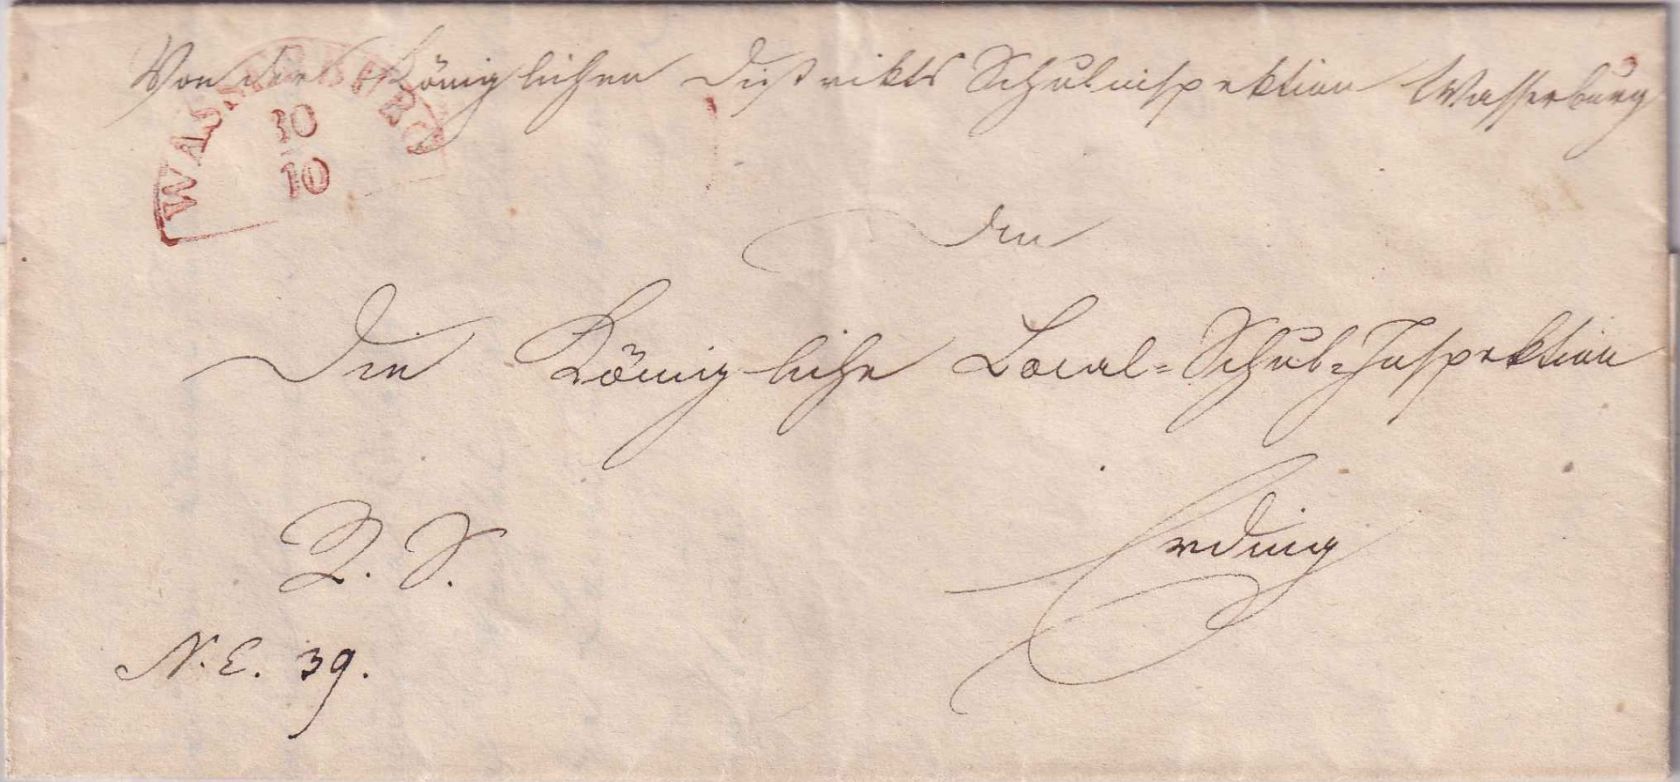 Von der Königlichen Distrikts Schulinspektion Wasserburg
WASSERBURG
30
10
An
Die Königliche Local=Schul=Inspektion
Erding
R. S.
N. E. 39.